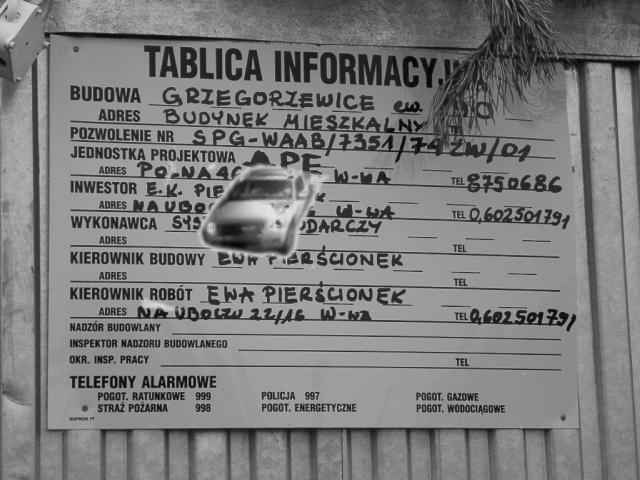 TABLICA INFORMACYJ
BUDOWA GRZEGORZEWICE ew.
ADRES BUDYNEK MIESZKALNY
POZWOLENIE NR SPG-WAAB/7351/74 ZW/01
JEDNOSTKA PROJEKTOWA APE
ADRES POLNA W-WA TEL 8750686
INWESTOR E.K. PIE
ADRES NA UBOC W-WA TEL 0,602501791
WYKONAWCA SYS DARCZY
ADRES TEL
KIEROWNIK BUDOWY EWA PIERŚCIONEK
ADRES TEL
KIEROWNIK ROBÓT EWA PIERŚCIONEK
ADRES NA UBOCZU 22/16 W-wa TEL 0,602501791
NADZÓR BUDOWLANY
INSPEKTOR NADZORU BUDOWLANEGO
OKR. INSP. PRACY TEL
TELEFONY ALARMOWE
POGOT. RATUNKOWE 999 POLICJA 997 POGOT. GAZOWE
STRAŻ POŻARNA 998 POGOT. ENERGETYCZNE POGOT. WODOCIĄGOWE